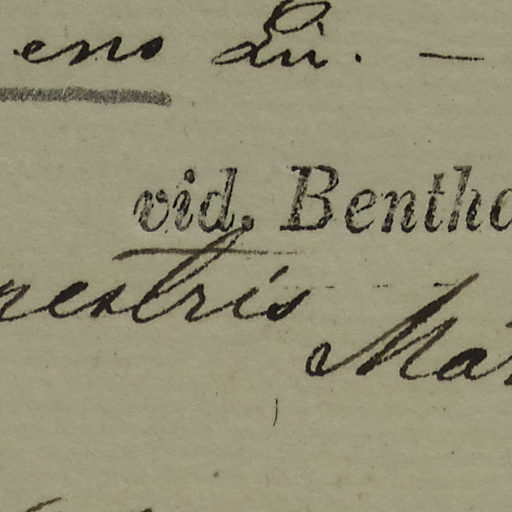 ens Lin. —
vid. Bentha
nestris
Mar